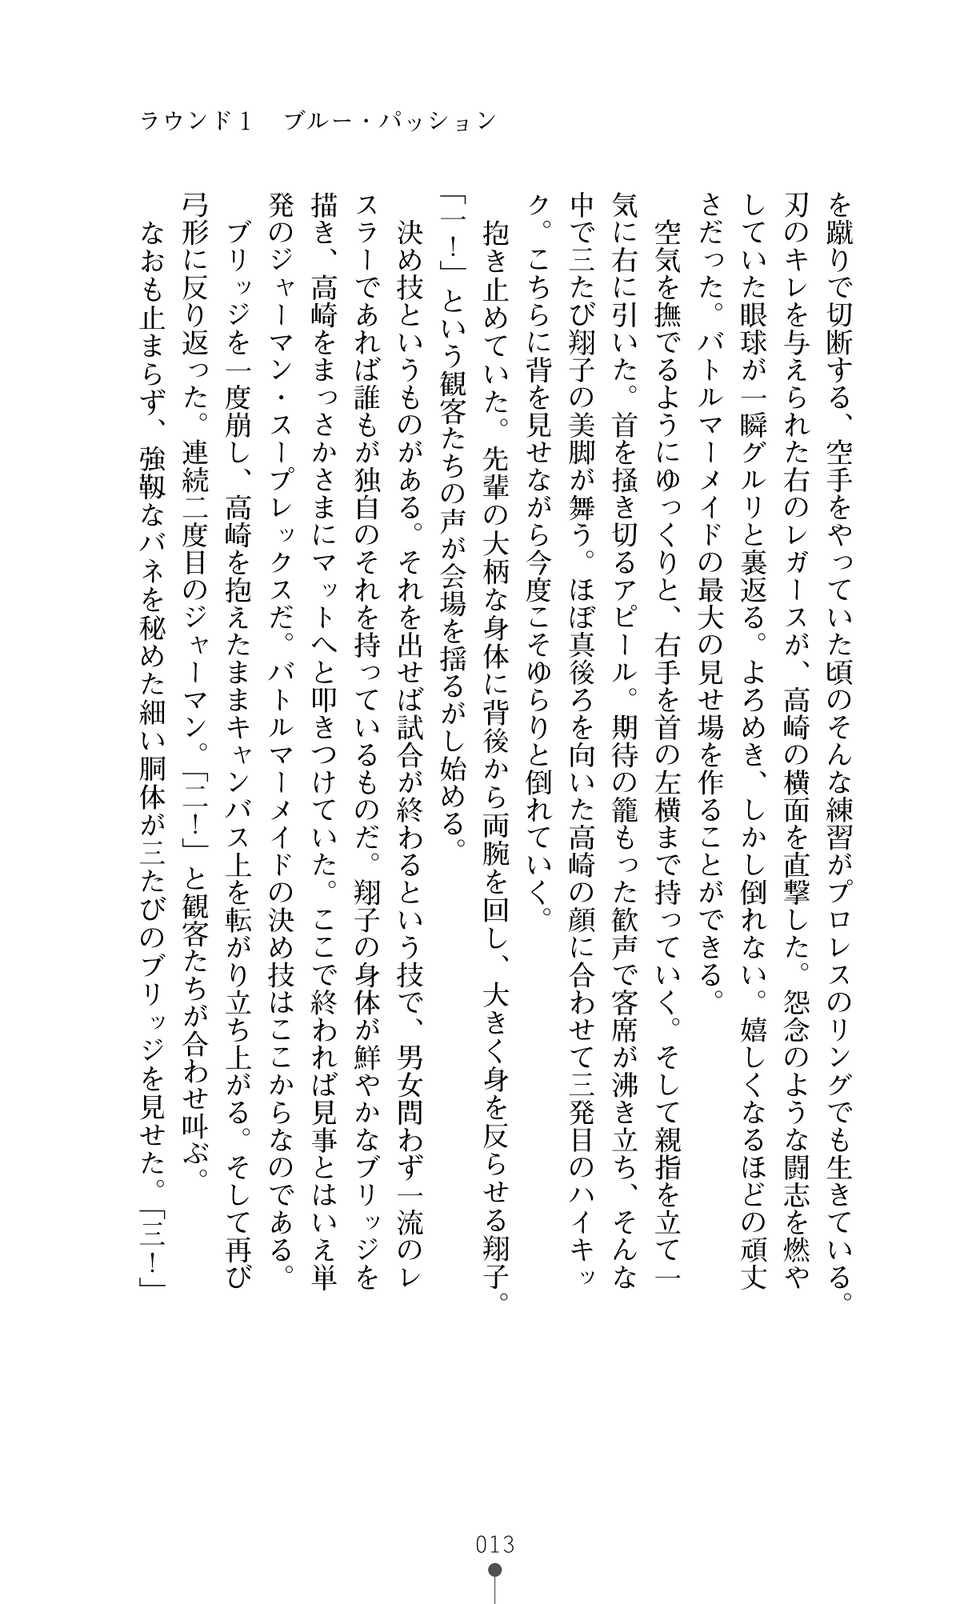 ラウンド１　ブルー・パッション
を蹴りで切断する、空手をやっていた頃のそんな練習がプロレスのリングでも生きている。
刃のキレを与えられた右のレガースが、高崎の横面を直撃した。怨念のような闘志を燃や
していた眼球が一瞬グルリと裏返る。よろめき、しかし倒れない。嬉しくなるほどの頑丈
さだった。バトルマーメイドの最大の見せ場を作ることができる。
　空気を撫でるようにゆっくりと、右手を首の左横まで持っていく。そして親指を立て一
気に右に引いた。首を掻き切るアピール。期待の籠もった歓声で客席が沸き立ち、そんな
中で三たび翔子の美脚が舞う。ほぼ真後ろを向いた高崎の顔に合わせて三発目のハイキッ
ク。こちらに背を見せながら今度こそゆらりと倒れていく。
　抱き止めていた。先輩の大柄な身体に背後から両腕を回し、大きく身を反らせる翔子。
「一！」という観客たちの声が会場を揺るがし始める。
　決め技というものがある。それを出せば試合が終わるという技で、男女問わず一流のレ
スラーであれば誰もが独自のそれを持っているものだ。翔子の身体が鮮やかなブリッジを
描き、高崎をまっさかさまにマットへと叩きつけていた。ここで終われば見事とはいえ単
発のジャーマン・スープレックスだ。バトルマーメイドの決め技はここからなのである。
　ブリッジを一度崩し、高崎を抱えたままキャンバス上を転がり立ち上がる。そして再び
弓形に反り返った。連続二度目のジャーマン。「二！」と観客たちが合わせ叫ぶ。
　なおも止まらず、強靱なバネを秘めた細い胴体が三たびのブリッジを見せた。「三！」
013